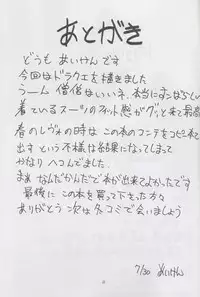 あとがき
どうも あいけん です
今回はドラクエを描きました
うーん 僧侶はいいネ、本当にすンばらしい
着ているスーツのフィット感がグッと来て最高
春のレヴォの時は この本のコンテをコピー本で
出す という不様な結果になってしまって
かなり ヘコんでました.
まぁ なんだかんだで本が出来てよかったです
最後に この本を買って下さった方々
ありがとう 次は冬コミで会いましょう
7/30 あいけん